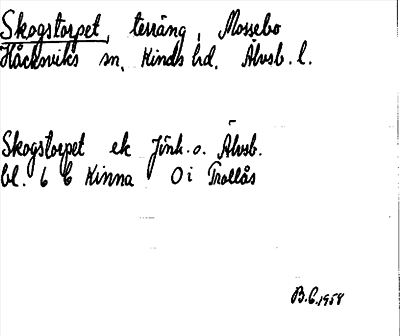 Skogstorpet, terräng, Mossebo
Håcksviks sn, Kinds hd. Älvsb. l.
Skogstorpet ek Jönk. o. Älvsb.
bl. 6 6 Kinna O i Trollås
B.C. 1958